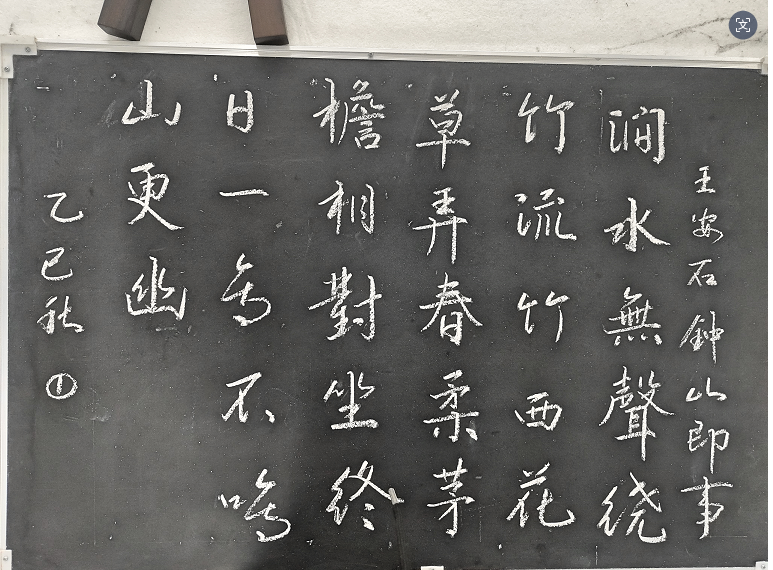 王安石鈡山即事
澗水無聲绕
竹流竹西花
草弄春柔茅
檐相對坐终
日一鸟不鸣
山更幽
乙巳秋①